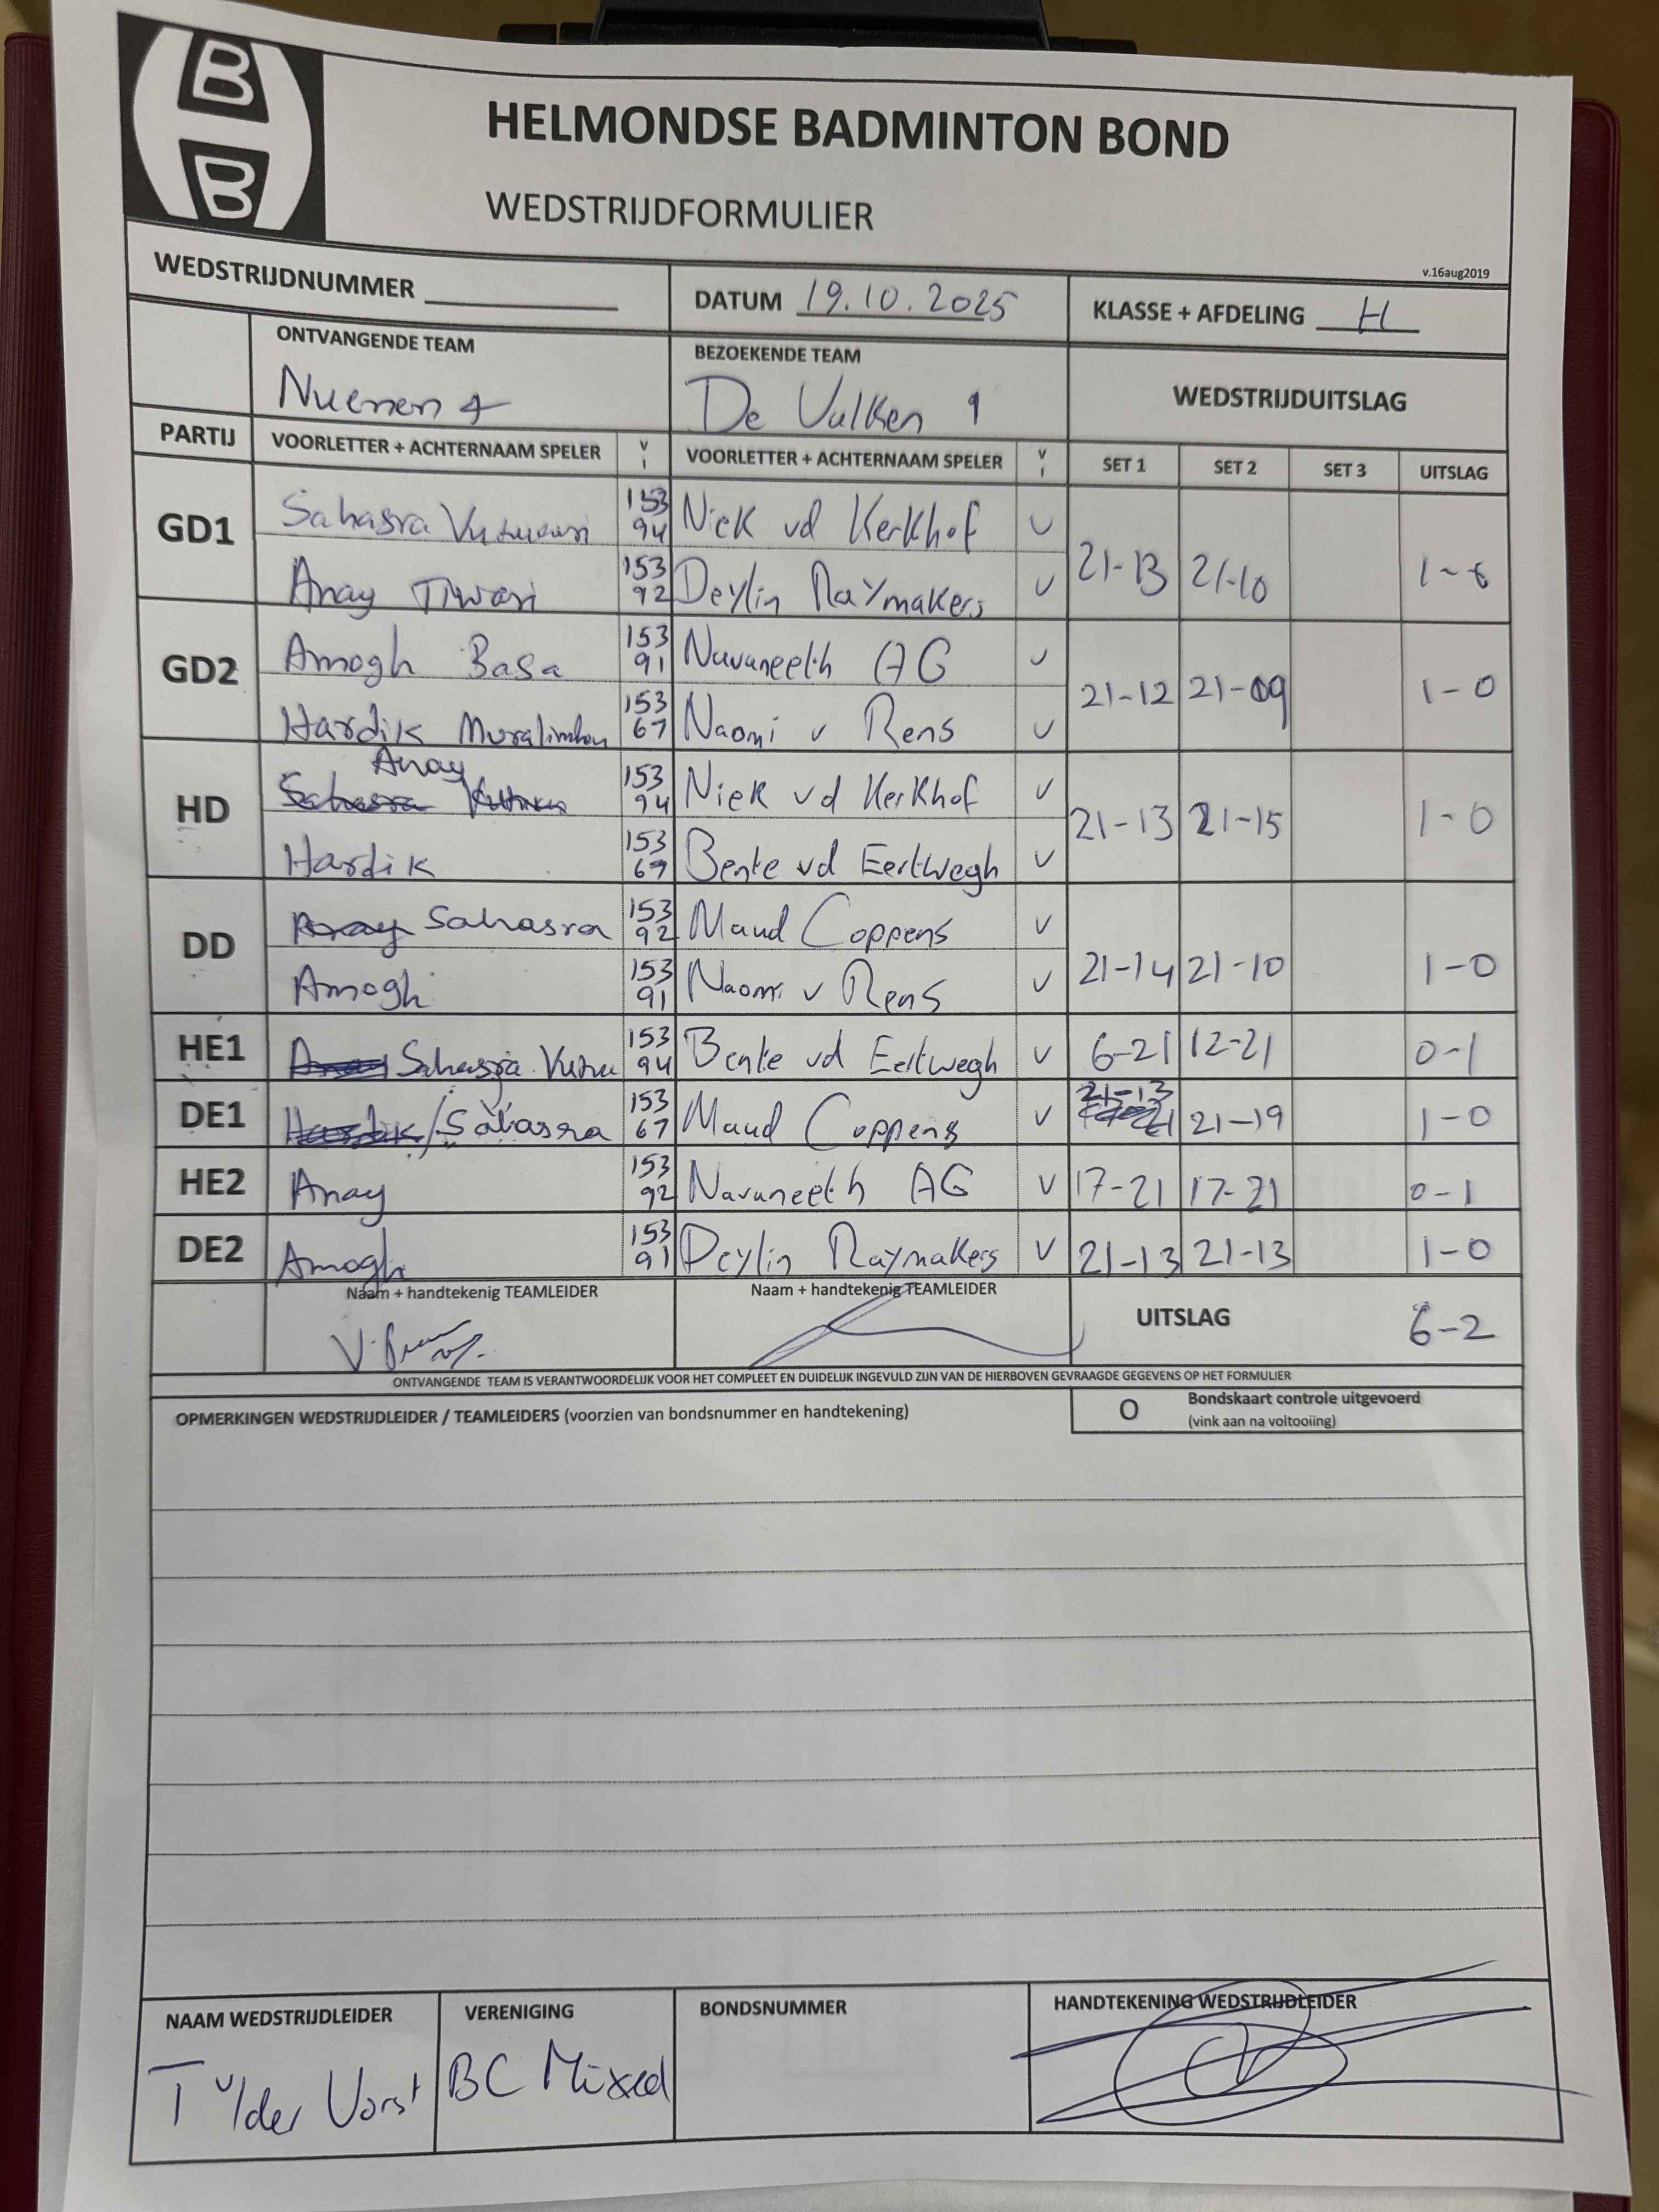 B
H
B
HELMONDSE BADMINTON BOND
WEDSTRIJDFORMULIER
v.16aug2019
WEDSTRIJDNUMMER
DATUM 19.10.2025
KLASSE + AFDELING H
ONTVANGENDE TEAM
BEZOEKENDE TEAM
WEDSTRIJDUITSLAG
Nuenen 4
De Valken 1
PARTIJ VOORLETTER + ACHTERNAAM SPELER V I VOORLETTER + ACHTERNAAM SPELER V I SET 1 SET 2 SET 3 UITSLAG
GD1 Sahasra 153 94 Niek vd Kerkhof V
Anay Tiwari 153 92 Deylin Raymakers V 21-13 21-10 1-0
GD2 Amogh Basa 153 91 Navaneeth AG V
Hardik 153 67 Naomi v Rens V 21-12 21-09 1-0
HD Anay 153 94 Niek vd Kerkhof V
Hardik 153 67 Bente vd Eertwegh V 21-13 21-15 1-0
DD Anay Sahasra 153 92 Maud Coppens V
Amogh 153 91 Naomi v Rens V 21-14 21-10 1-0
HE1 Sahasra 153 94 Bente vd Eertwegh V 6-21 12-21 0-1
DE1 Hardik/Sahasra 153 67 Maud Coppens V 21-13 21-19 1-0
HE2 Anay 153 92 Navaneeth AG V 17-21 17-21 0-1
DE2 Amogh 153 91 Deylin Raymakers V 21-13 21-13 1-0
Naam + handtekenig TEAMLEIDER
Naam + handtekenig TEAMLEIDER
UITSLAG 6-2
ONTVANGENDE TEAM IS VERANTWOORDELIJK VOOR HET COMPLEET EN DUIDELIJK INGEVULD ZIJN VAN DE HIERBOVEN GEVRAAGDE GEGEVENS OP HET FORMULIER
OPMERKINGEN WEDSTRIJDLEIDER / TEAMLEIDERS (voorzien van bondsnummer en handtekening)
O Bondskaart controle uitgevoerd
(vink aan na voltooiing)
NAAM WEDSTRIJDLEIDER
VERENIGING
BONDSNUMMER
HANDTEKENING WEDSTRIJDLEIDER
T v/der Vorst
BC Mixed